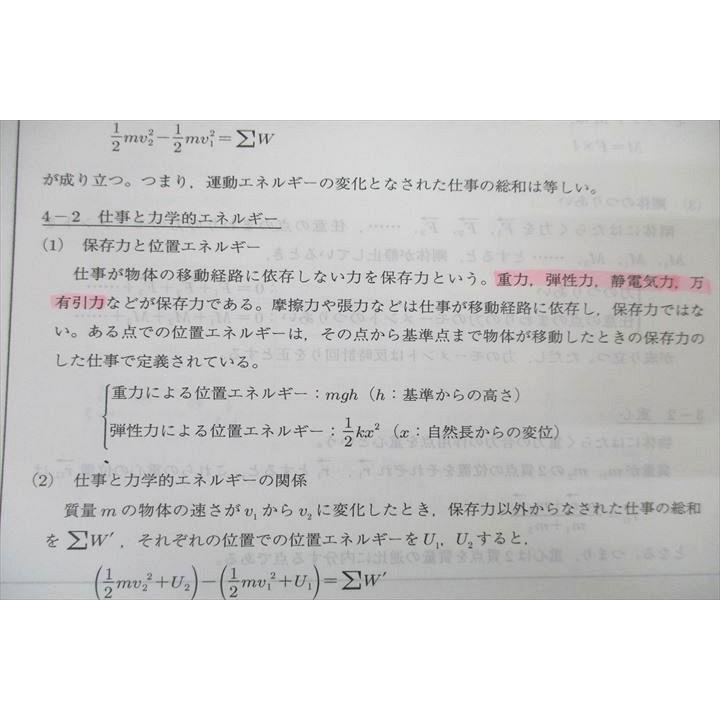 ½mv₂² − ½mv₁² = ∑W
が成り立つ。つまり，運動エネルギーの変化となされた仕事の総和は等しい。
4−2 仕事と力学的エネルギー
(1) 保存力と位置エネルギー
仕事が物体の移動経路に依存しない力を保存力という。重力，弾性力，静電気力，万
有引力などが保存力である。摩擦力や張力などは仕事が移動経路に依存し，保存力ではな
い。ある点での位置エネルギーは，その点から基準点まで物体が移動したときの保存力の
した仕事で定義されている。
重力による位置エネルギー：mgh（h：基準からの高さ）
弾性力による位置エネルギー：½kx²（x：自然長からの変位）
(2) 仕事と力学的エネルギーの関係
質量 m の物体の速さが v₁ から v₂ に変化したとき，保存力以外からなされた仕事の総和
を ∑W′，それぞれの位置での位置エネルギーを U₁，U₂ すると，
(½mv₂² + U₂) − (½mv₁² + U₁) = ∑W′